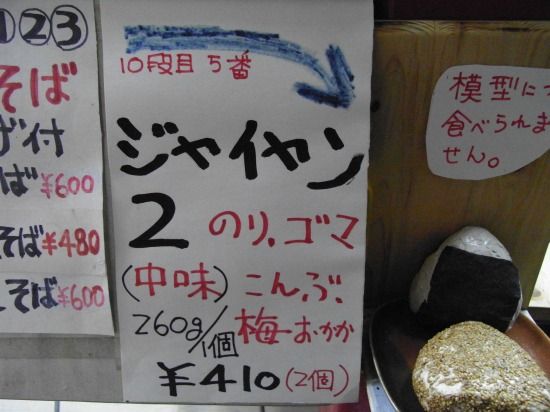 ①②③
そば
げ付
ば ¥600
そば ¥480
そば ¥600
10段目 5番
ジャイヤン
2 のり、ゴマ
(中味) こんぶ、
260g/1個 梅おかか
¥410 (2個)
模型に
食べられま
せん。